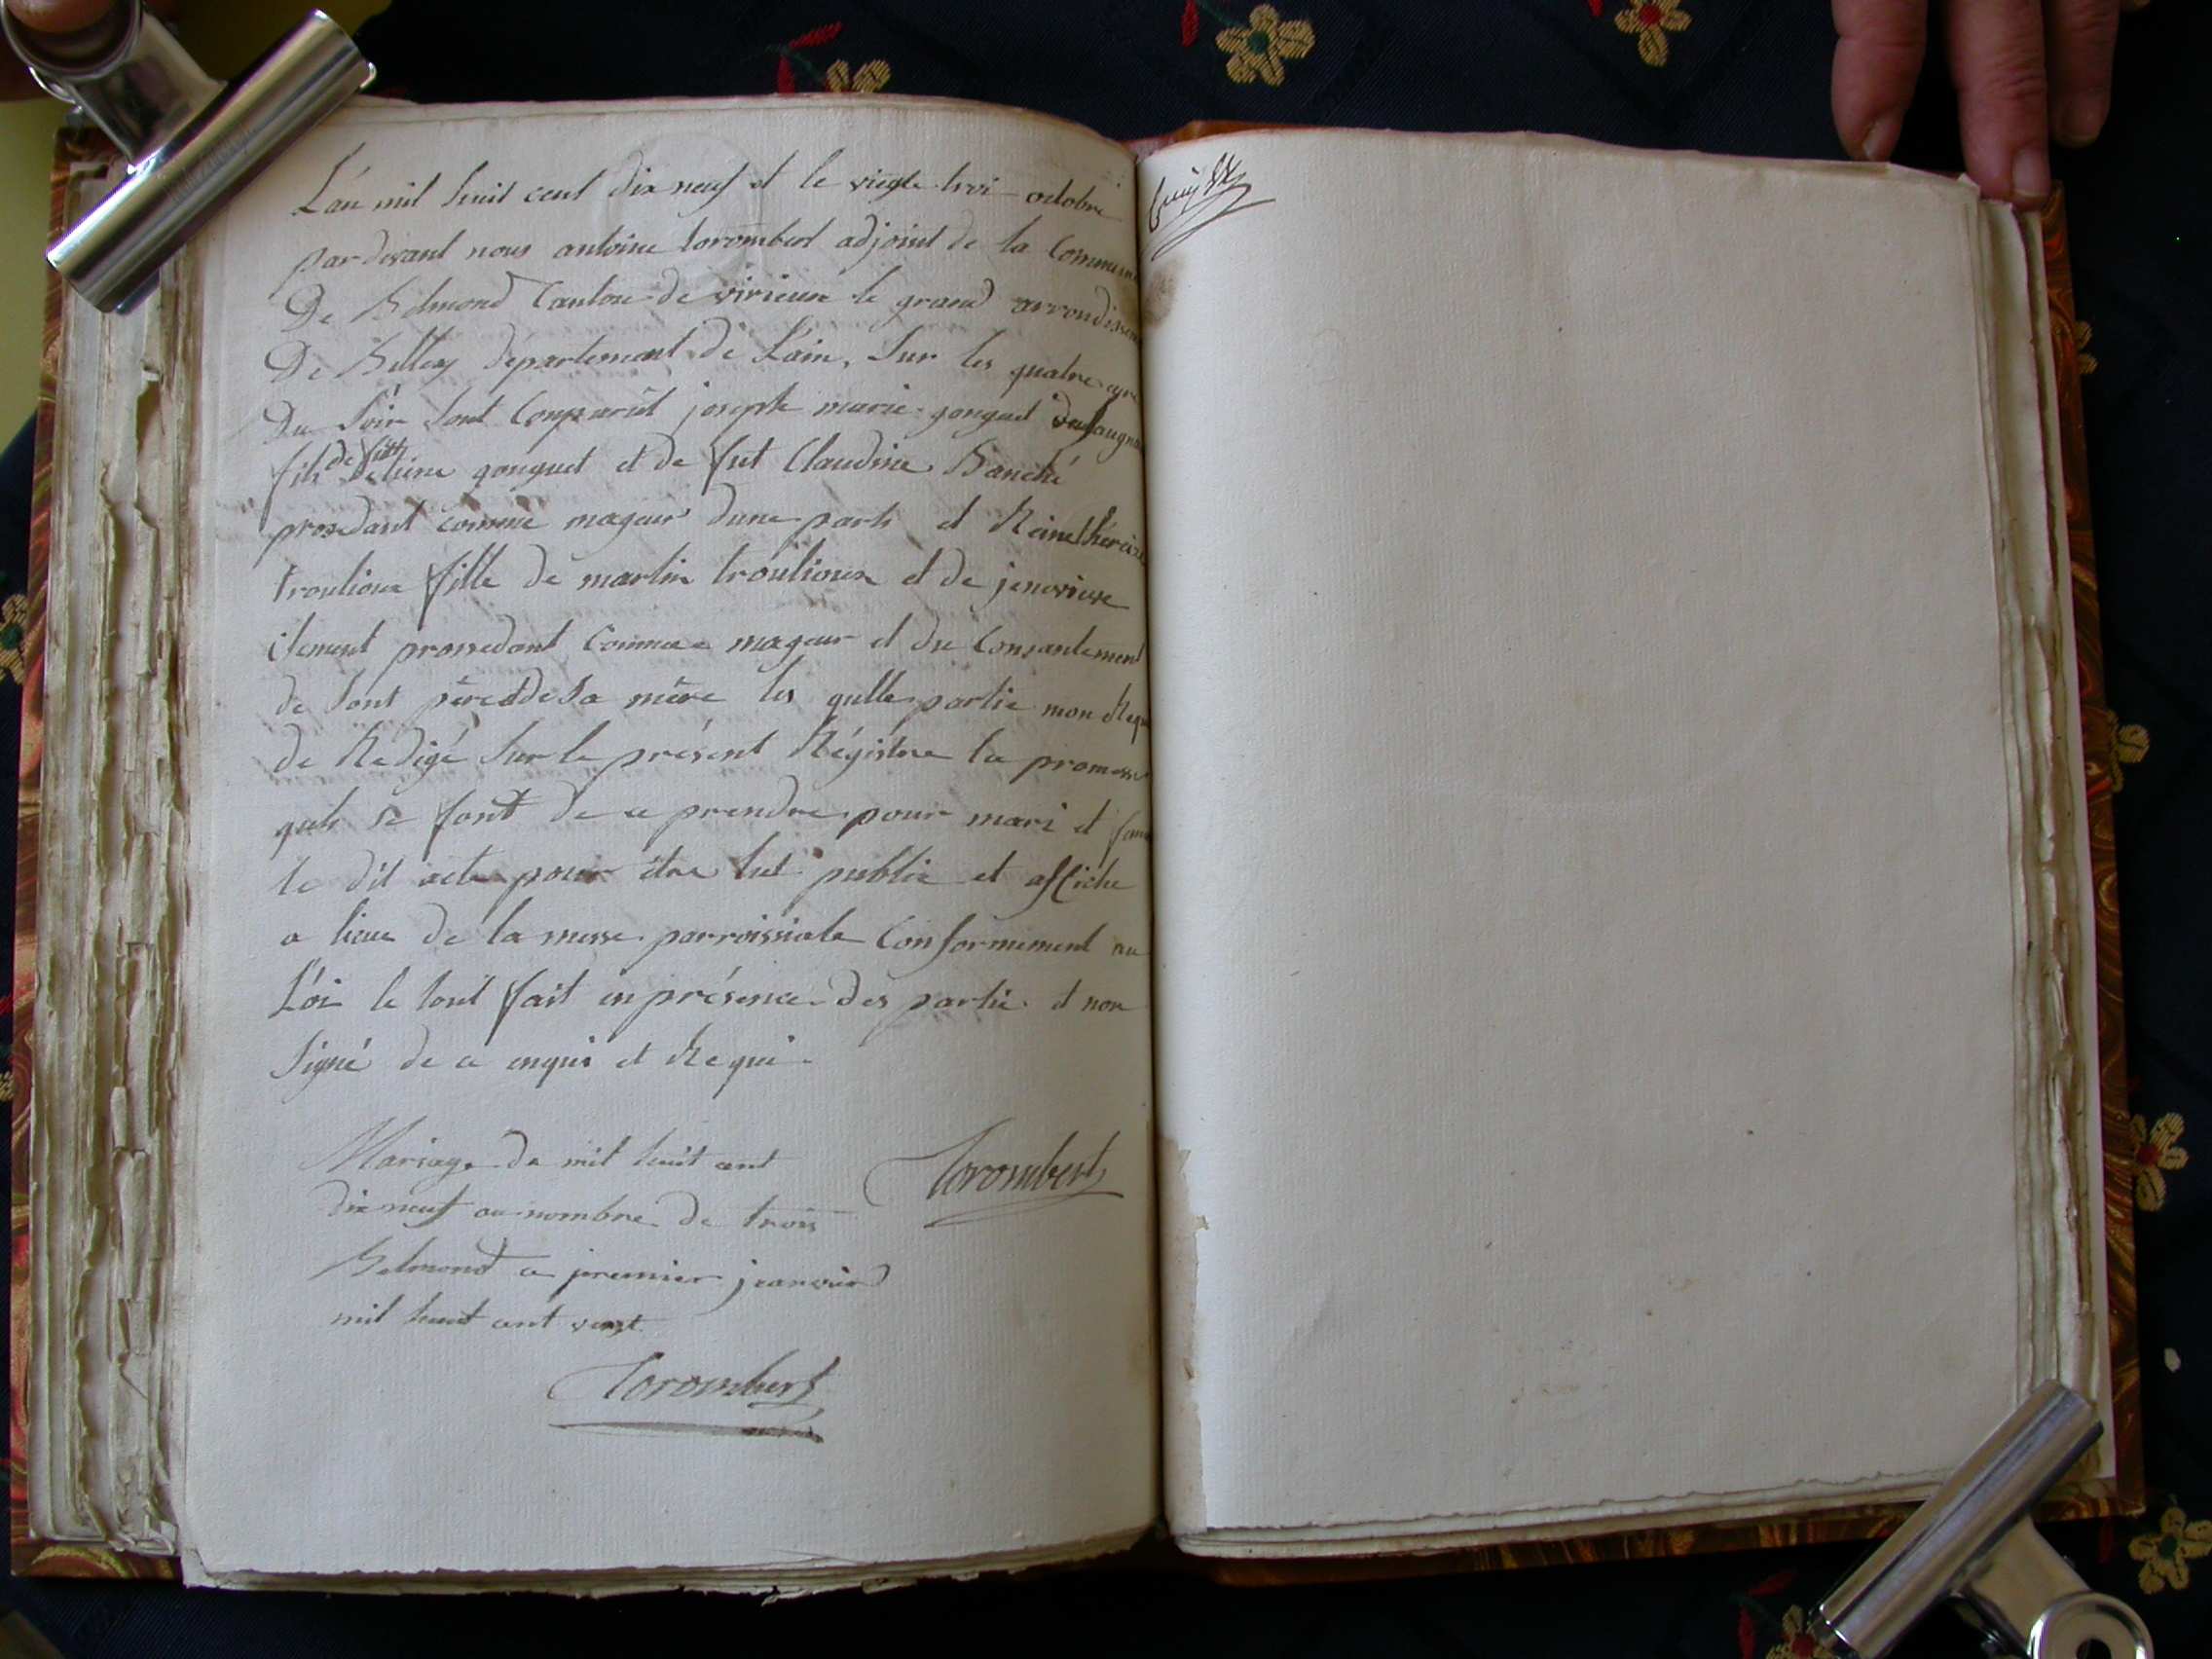 L'an mil huit cent dix neuf et le viegte troi octobre
par devant nous antoine torombert adjoint de la Commune
De Belmond Canton de virieux le grand arrondissem
De Belley département de L'ain, Sur les quatre
Du Soir Sont Comparût joseph marie gonguet
fils de fut Etiene gonguet et de fut Claudine Banché
prosedant comme mageur dune parti et Reine thérèse
troulioux fille de martin troulioux et de jenevieve
clement prossedant Comme mageur et du Consantement
de Sont père et de Sa mère les qulle partie mon Requ
de Redigé Sur le présent Régistre la promesse
quls se font de ce prendre pour mari et fam
le dit acte pour être lut publie et affiche
a lieue de la messe parroissiale Conformement au
L'oi le tout fait en présence des partie et non
Signé de ce enquis et Requi
Torombert
Mariage de mil huit cent
dix neuf au nombre de trois
Belmond ce premier jeanvier
mil huit cent vengt
Torombert